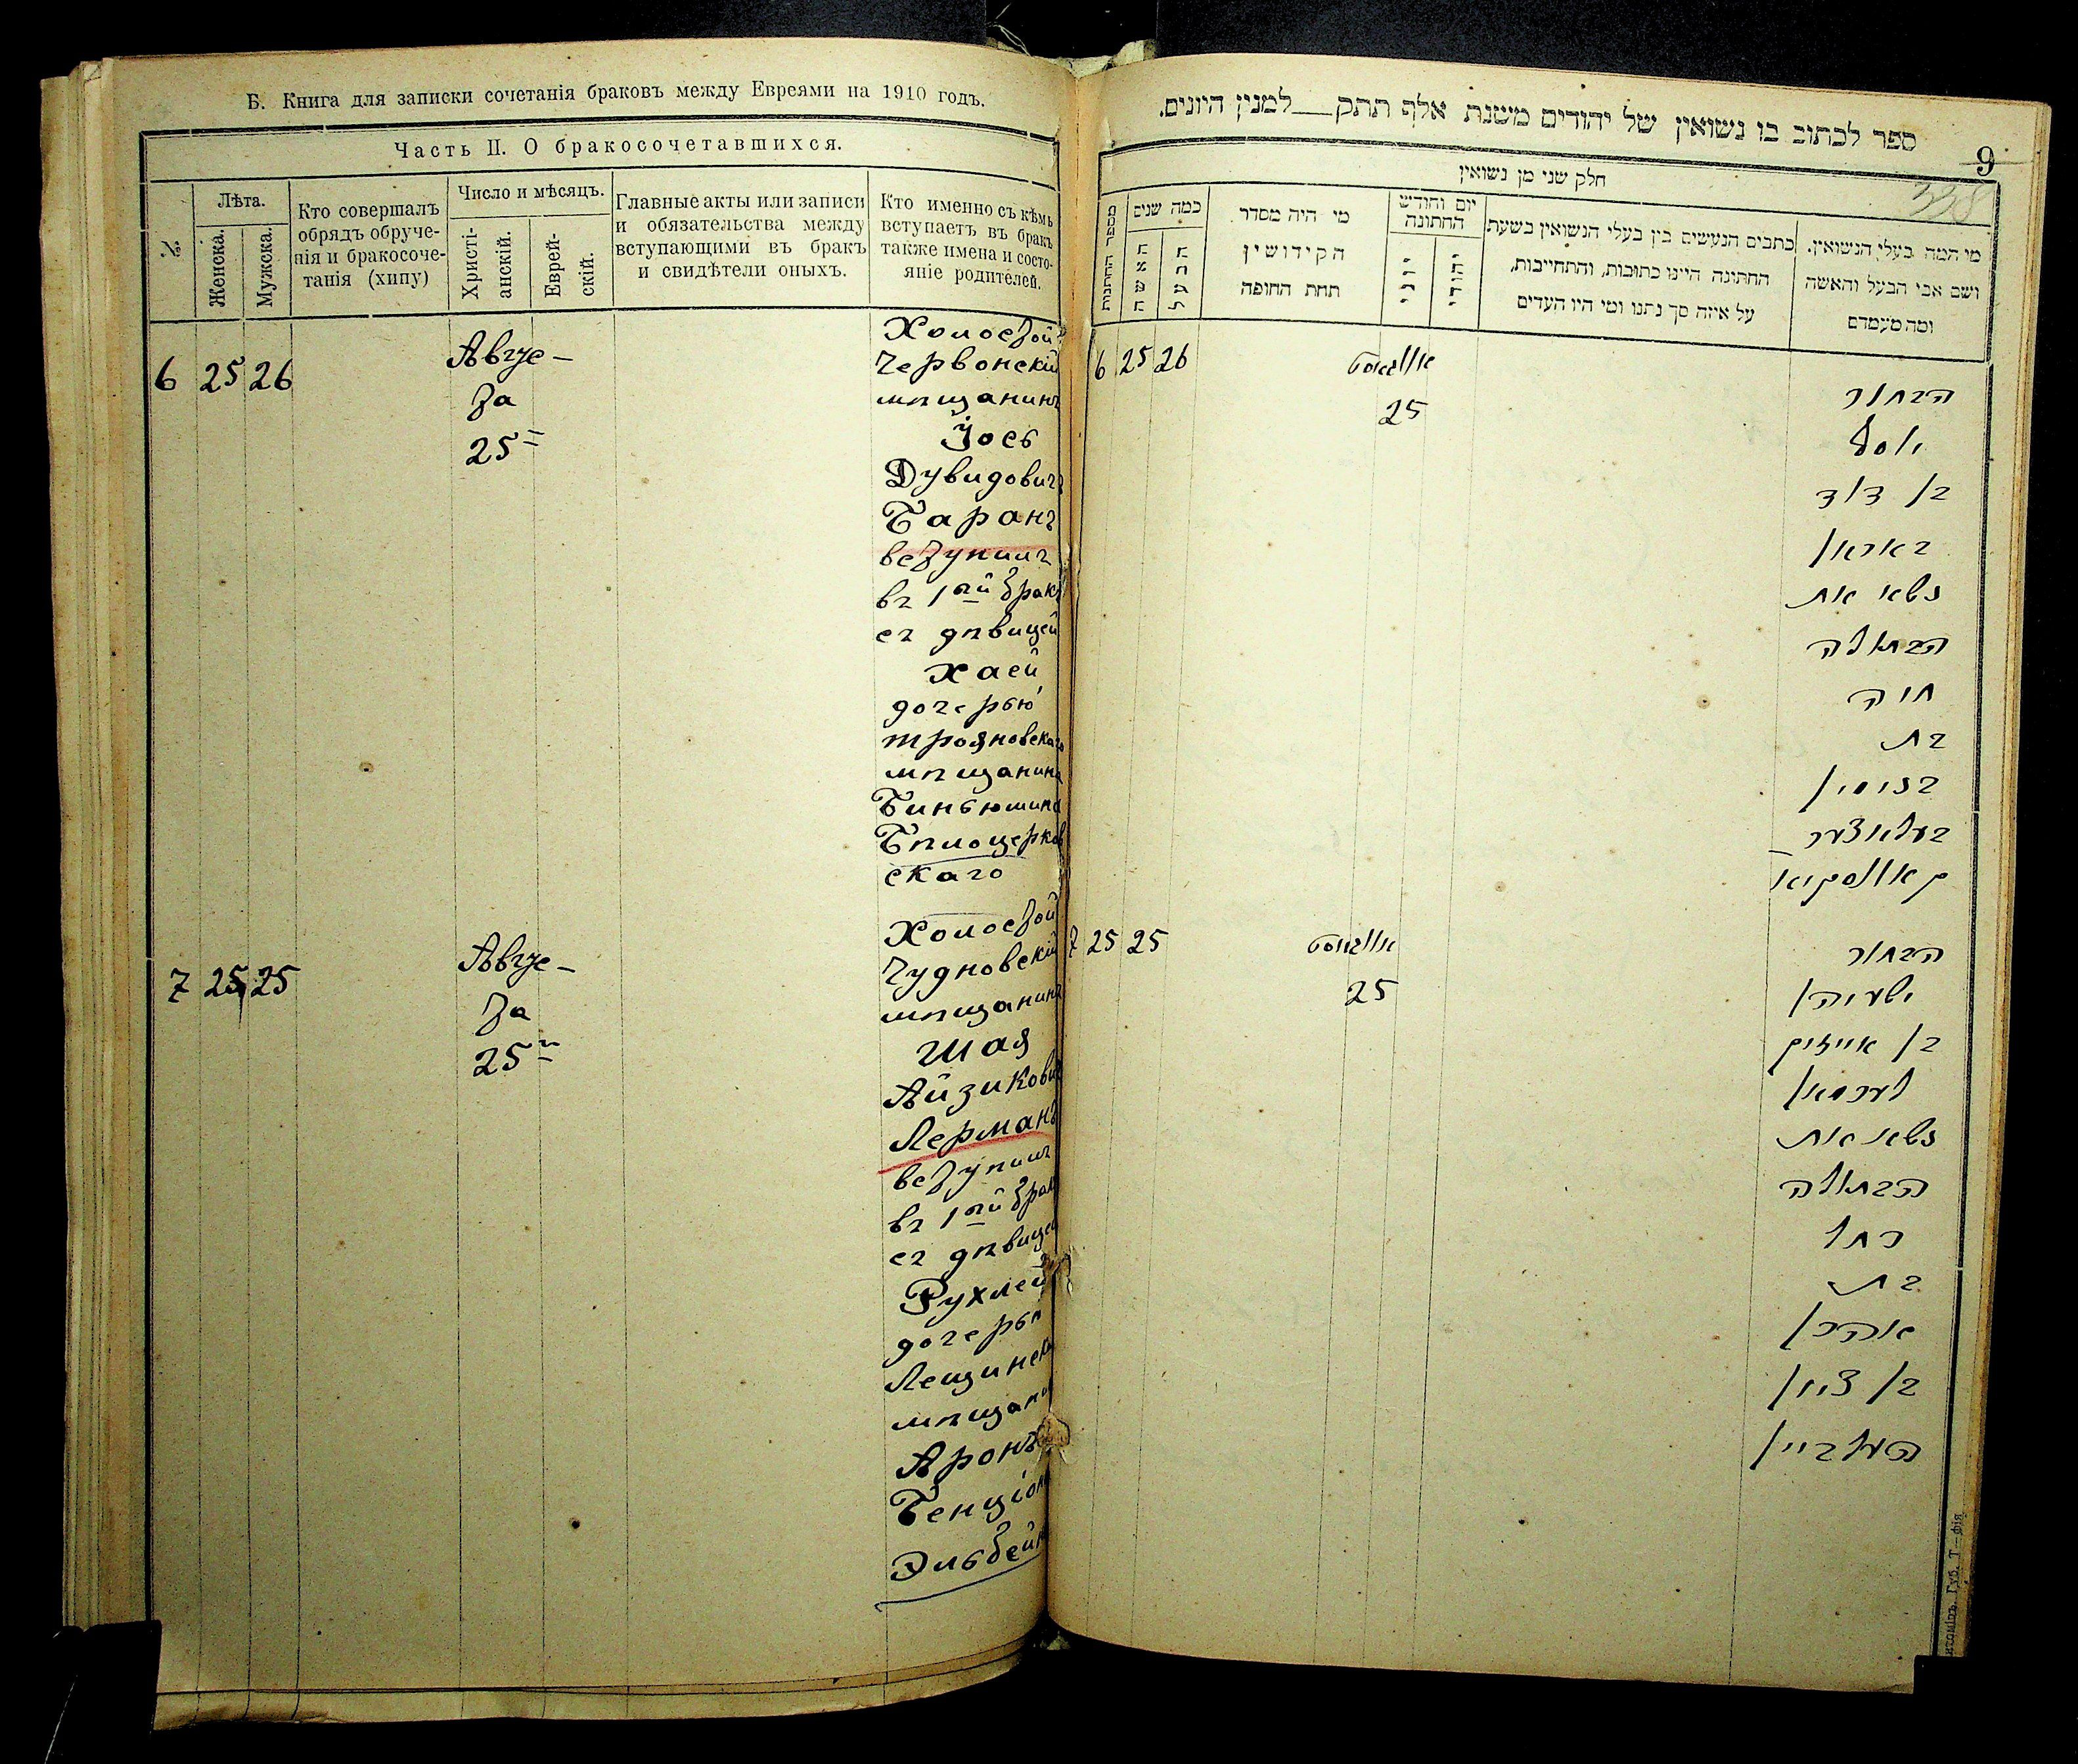 Б. Книга для записки сочетанія браковъ между Евреями на 1910 годъ.
Часть II. О бракосочетавшихся.
№.
Лѣта.
Женска.
Мужска.
Кто совершалъ
обрядъ обруче-
нія и бракосоче-
танія (хипу)
Число и мѣсяцъ.
Христі-
анскій.
Еврей-
скій.
Главные акты или записи
и обязательства между
вступающими въ бракъ
и свидѣтели оныхъ.
Кто именно съ кѣмъ
вступаетъ въ бракъ
также имена и состо-
яніе родителей.
6 25 26
Авгус-
та
25
Холостой
Червонскій
мѣщанинъ
Іось
Дувидовичъ
Баранъ
вступилъ
въ 1ый бракъ
съ дѣвицей
Хаей
дочерью
трояновскаго
мѣщанина
Биньюмина
Бѣлоцерков
скаго
7 25 25
Авгус-
та
25
Холостой
Чудновскій
мѣщанинъ
Шая
Айзикович
Лерманъ
вступилъ
въ 1ый брак
съ дѣвицей
Рухлей
дочерью
Лещинска
мѣщанин
Аронъ
Бенціон
Эльбейн
ספר לכתוב בו נשואין של יהודים משנת אלף תתק___למנין היונים.
9
338
חלק שני מן נשואין
מספר החתונות
כמה שנים
האשה
הבעל
מי היה מסדר
הקידושין
תחת החופה
יום וחודש
החתונה
יוני
יהודי
כתבים הנעשים בין בעלי הנשואין בשעת
החתונה היינו כתובות, והתחייבות,
על איזה סך נתנו ומי היו העדים
מי המה בעלי הנשואין.
ושם אבי הבעל והאשה
ומה מעמדם
6 25 26
אווגוסט
25
הבחור
יוסף
בן דוד
באראן
נשא את
הבתולה
חיה
בת
בנימין
בעלאצער
קאווסקיא
7 25 25
אווגוסט
25
הבחור
ישעיהו
בן אייזיק
לערמאן
נשא את
הבתולה
רחל
בת
אהרן
בן ציון
העלביין
Губ. Т—фія